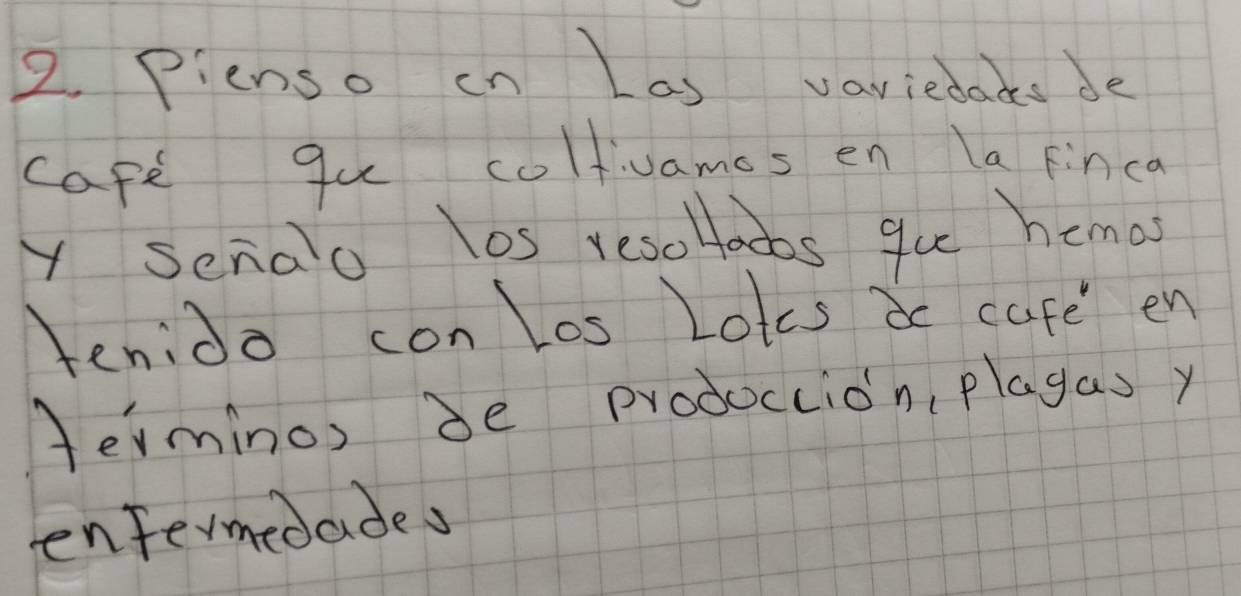 2. Pienso en Las variedades de
café que coltivamos en la finca
y señalo los resoltados que hemos
tenido con los Lotes de café en
términos de prodocción, plagas y
enfermedades